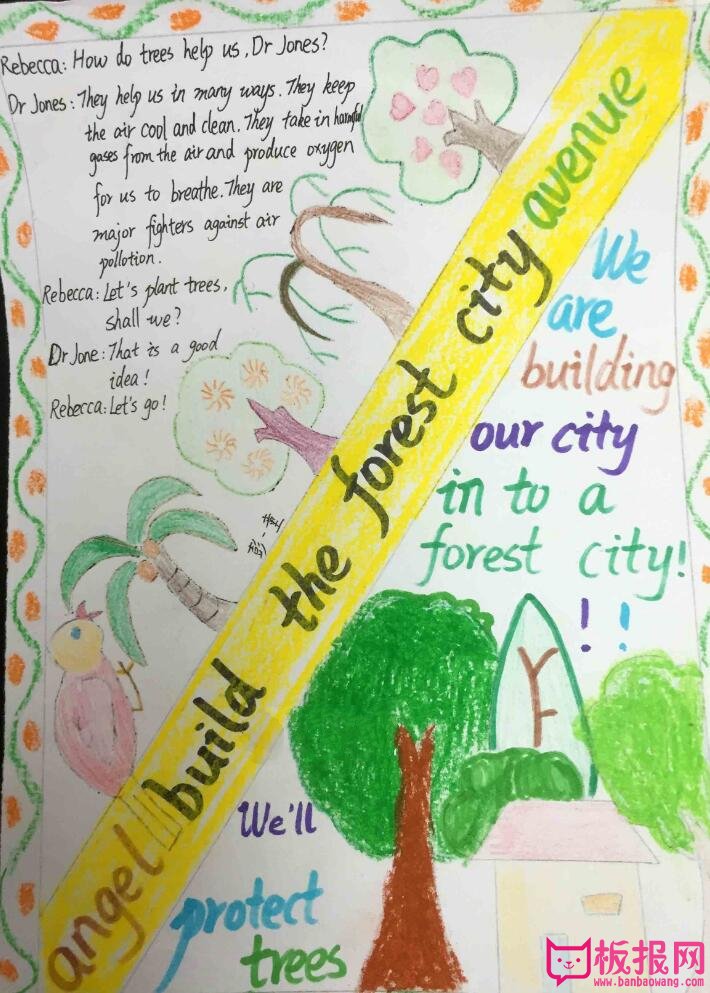 Rebecca: How do trees help us, Dr Jones?
Dr Jones: They help us in many ways. They keep
the air cool and clean. They take in harmful
gases from the air and produce oxygen
for us to breathe. They are
major fighters against air
pollotion.
Rebecca: Let's plant trees,
shall we?
Dr Jone: That is a good
idea!
Rebecca: Let's go!
angel build the forest city avenue
We
are
building
our city
in to a
forest city!
! !
We'll
protect
trees
板报网
www.banbaowang.com